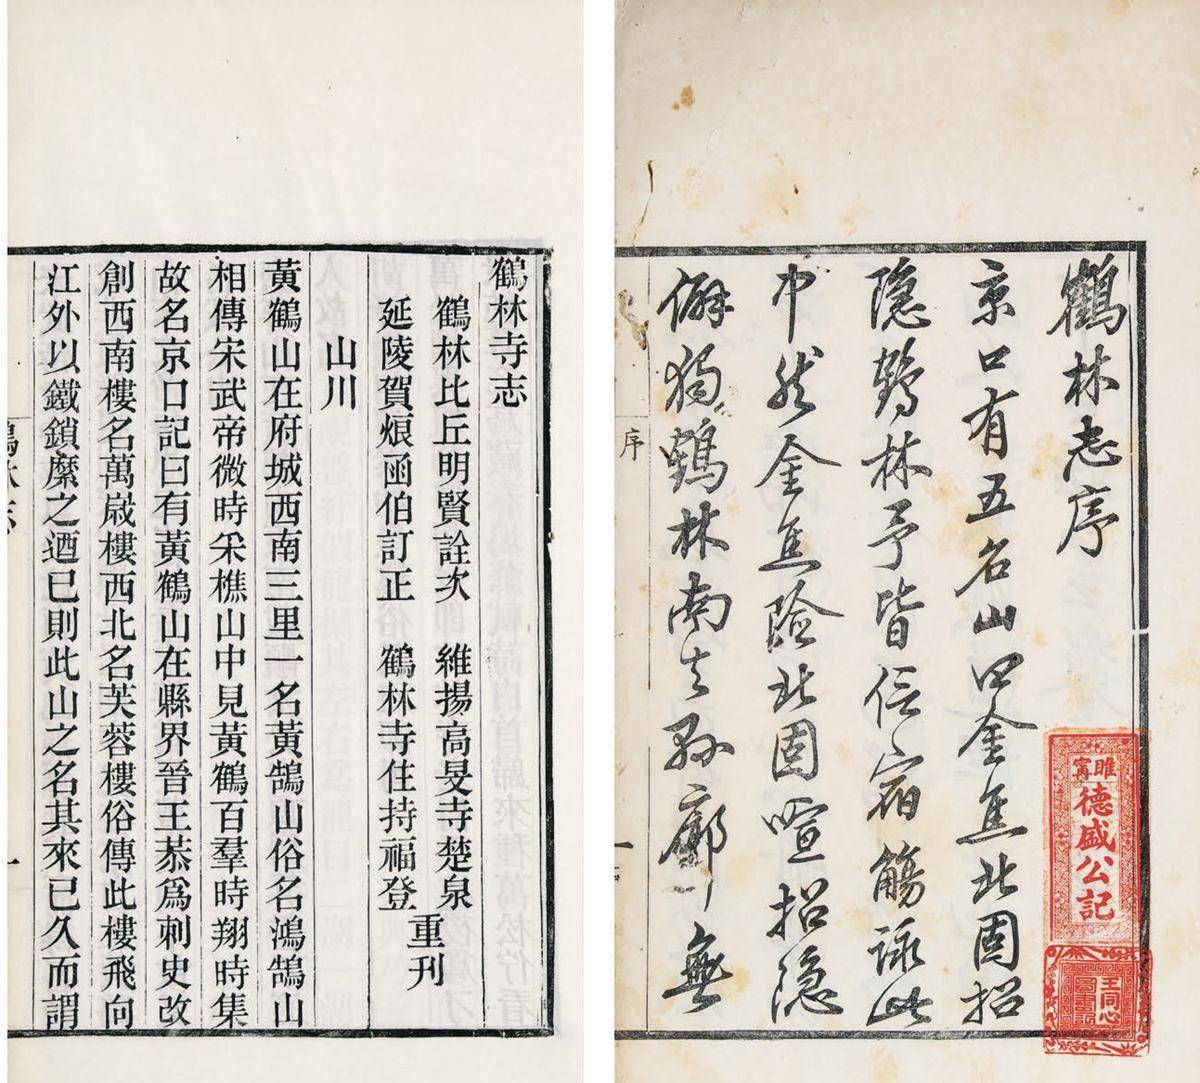 鶴林志序
京口有五名山曰金焦北固招
隱鶴林予皆信宿觴詠此
中然金焦險北固喧招隱
僻獨鶴林南去廓無
序
一
睢寧
德盛公記
王同心
鶴林寺志
鶴林比丘明賢詮次 維揚高旻寺楚泉
延陵賀烺函伯訂正 鶴林寺住持福登
重刊
山川
黃鶴山在府城西南三里一名黃鵠山俗名鴻鵠山
相傳宋武帝微時采樵山中見黃鶴百羣時翔時集
故名京口記曰有黃鶴山在縣界晉王恭為刺史改
創西南樓名萬歲樓西北名芙蓉樓俗傳此樓飛向
江外以鐵鎖縻之迺已則此山之名其來已久而謂
鶴林志
一